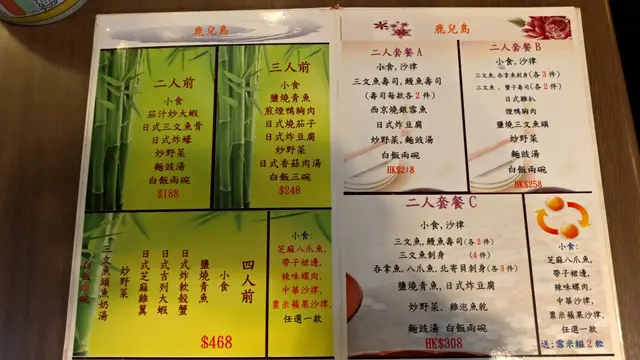 鹿兒島
二人前
小食
茄汁炒大蝦
日式三文魚骨
日式炸蠔
炒野菜
麵豉湯
白飯兩碗
$188
三人前
小食
鹽燒青魚
煎煙鴨胸肉
日式燒茄子
日式炸豆腐
炒野菜
日式香菇肉湯
白飯三碗
$248
四人前
小食
鹽燒青魚
日式炸軟殼蟹
日式吉列大蝦
日式芝麻雞翼
炒野菜
三文魚頭魚奶湯
白飯四碗
$468
小食:
芝麻八爪魚,
帶子裙邊,
辣味螺肉,
中華沙律,
粟米蘋果沙律,
任選一款
鹿兒島
二人套餐 A
小食,沙律
三文魚壽司,鰻魚壽司
(壽司每款各2件)
西京燒銀雪魚
日式炸豆腐
炒野菜,麵豉湯
白飯兩碗
二人套餐 B
小食,沙律
三文魚、吞拿魚刺身(各3件)
三文魚、蟹子壽司(各2件)
日式雞扒
煙鴨胸肉
鹽燒三文魚頭
炒野菜
麵豉湯
白飯兩碗
HK$258
二人套餐 C
小食,沙律
三文魚,鰻魚壽司(各2件)
三文魚刺身 (4件)
吞拿魚,八爪魚,北寄貝刺身(各3件)
鹽燒青魚,日式炸豆腐
炒野菜,雞泡魚乾
麵豉湯 白飯兩碗
HK$308
小食:
芝麻八爪魚,
帶子裙邊,
辣味螺肉,
中華沙律,
粟米蘋果沙律,
任選一款
送:雪米糍2粒